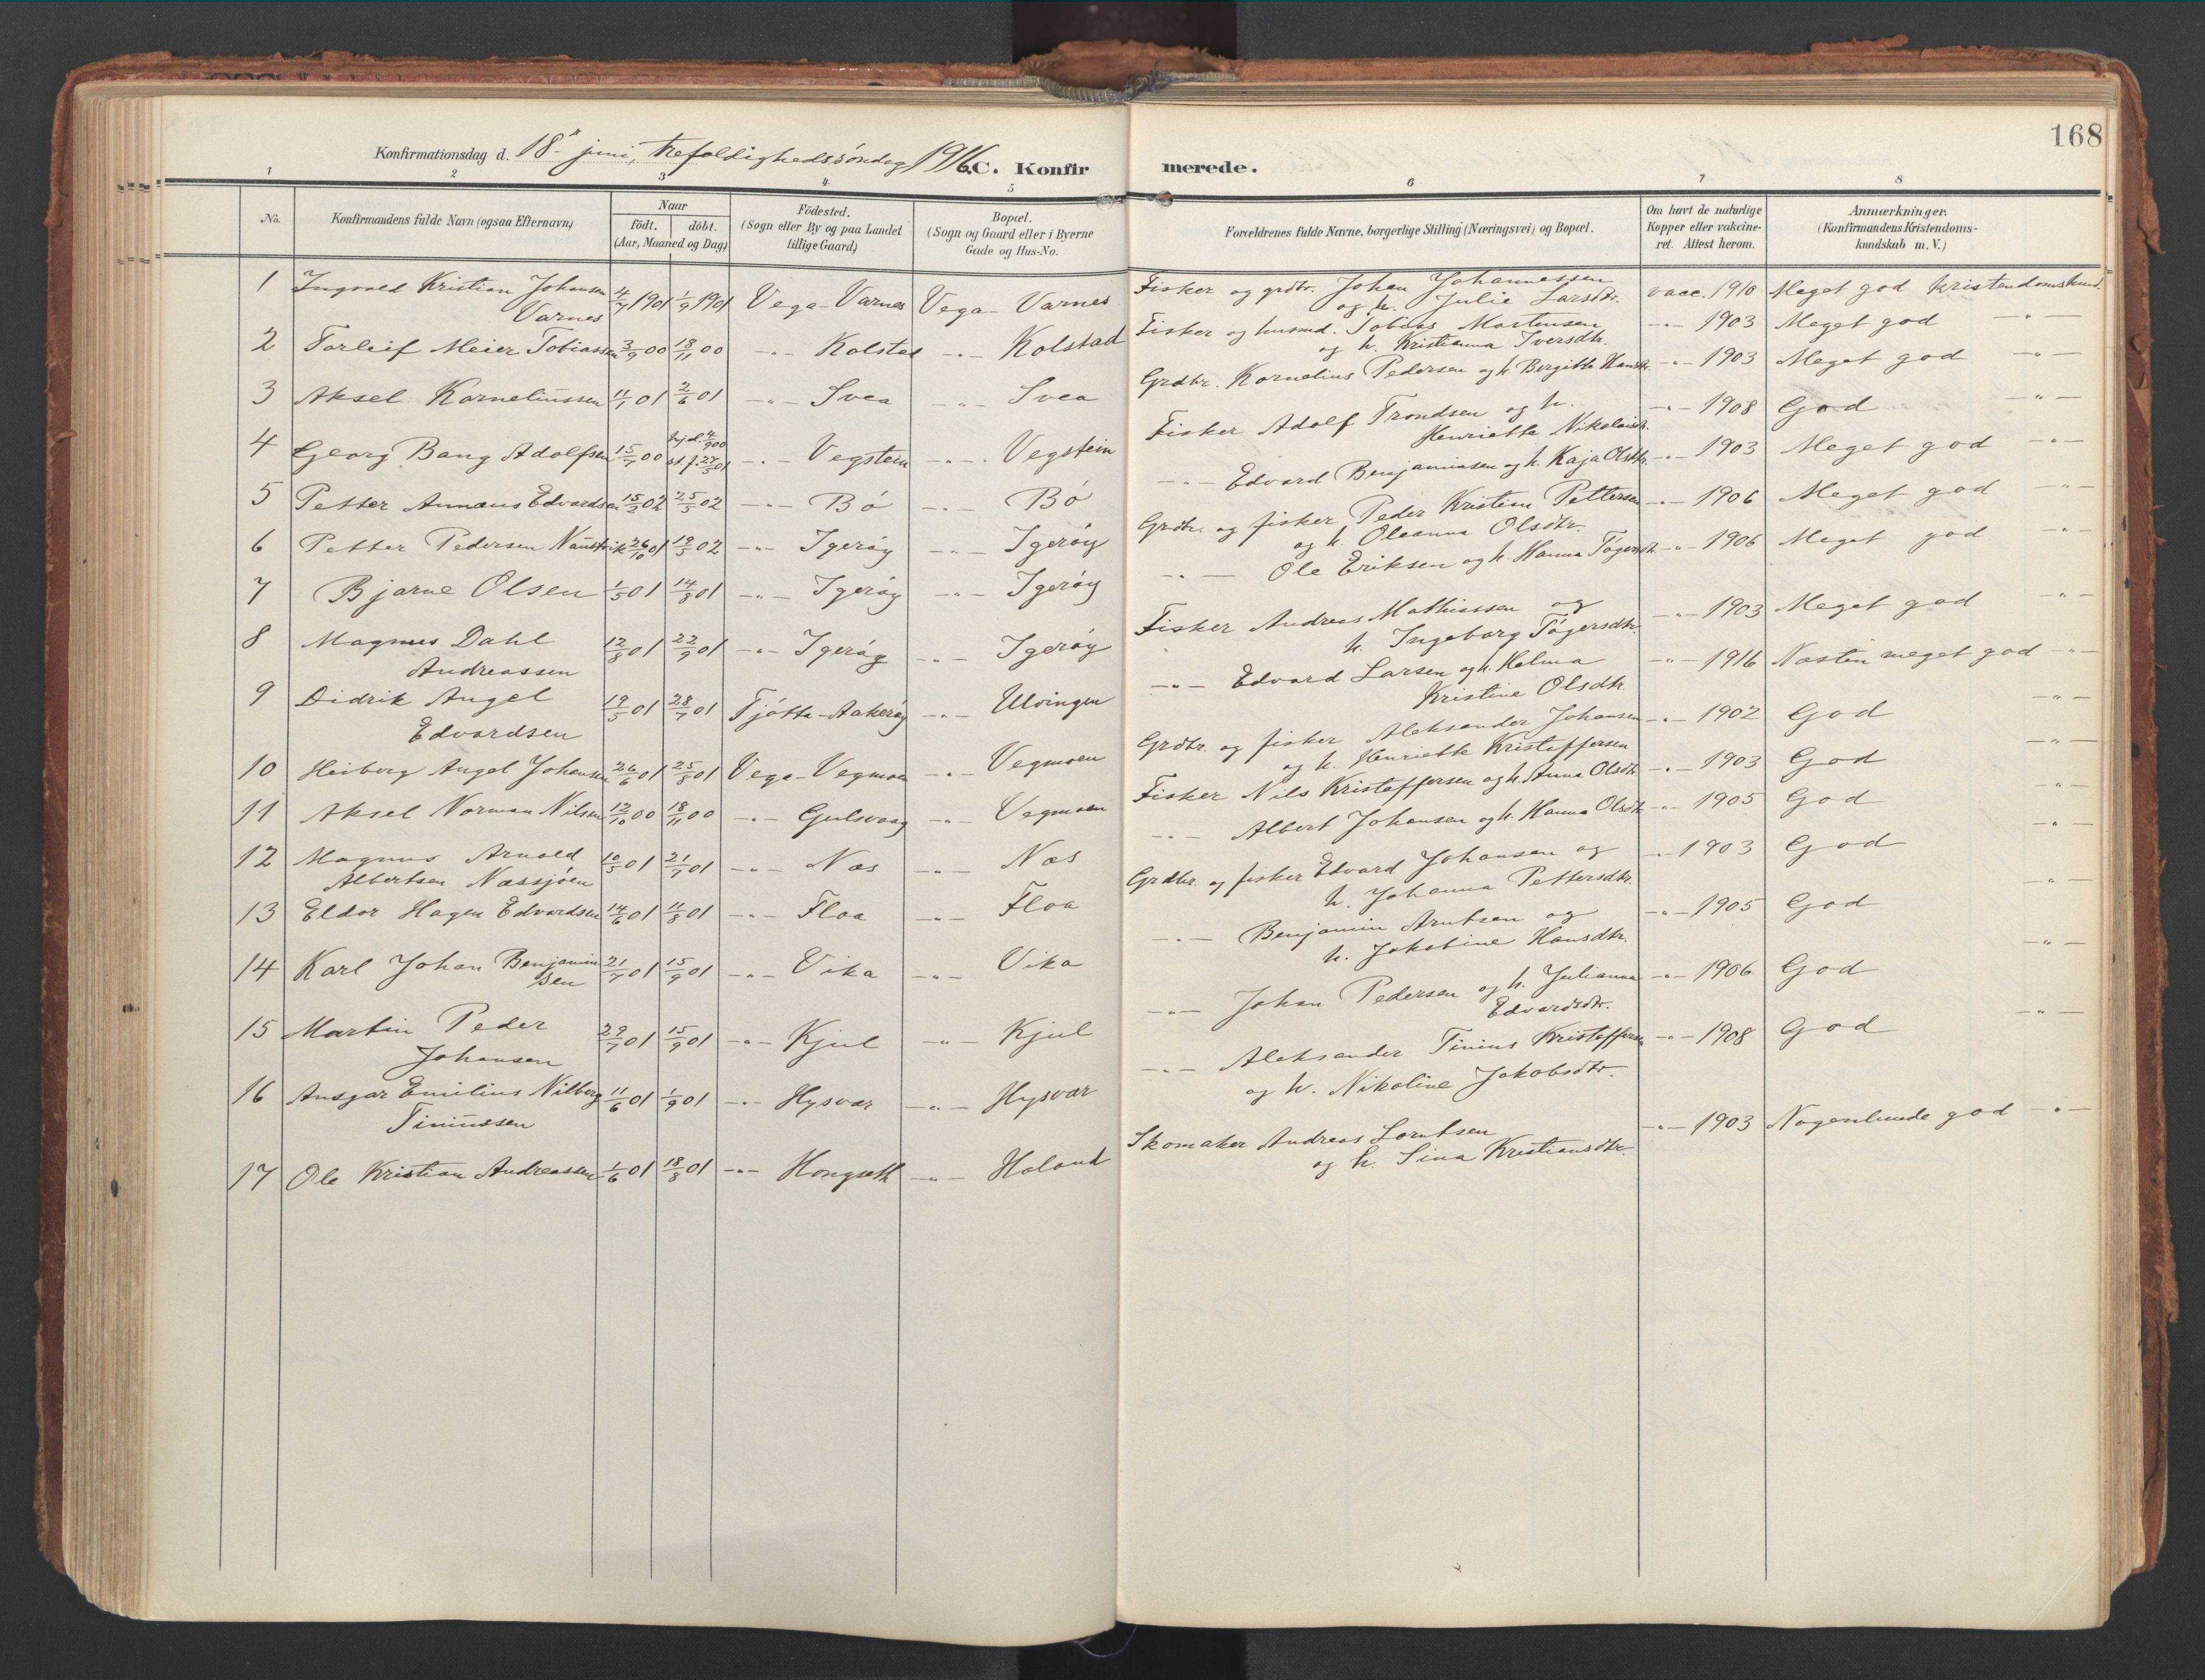 168
Konfirmationsdag d. 18de juni, trefoldighedssøndag 1916. C. Konfirmerede.
1 2 3 4 5 6 7 8
No. Konfirmandens fulde Navn (ogsaa Efternavn) Naar født. døbt. (Aar, Maaned og Dag) Fødested. (Sogn eller By og paa Landet tillige Gaard) Bopæl. (Sogn og Gaard eller i Byerne Gade og Hus-No. Forældrenes fulde Navne, borgerlige Stilling (Næringsvei) og Bopæl. Om havt de naturlige Kopper eller vakcineret. Attest herom. Anmærkninger. (Konfirmandens Kristendomskundskab m. V.)
1 Ingvald Kristian Johansen Varnes 4/7 1901 1/9 1901 Vega - Varnes Vega - Varnes Fisker og grdbr. Johan Johannessen og h. Julie Larsdtr. vacc. 1910 Meget god kristendomskund.
2 Torleif Meier Tobiassen 3/9 00 18/11 00 -"- Kolstad -"- Kolstad Fisker og husmd. Tobias Mortensen og h. Kristianna Iversdtr. -"- 1903 Meget god -"-
3 Aksel Korneliussen 11/1 01 2/6 01 -"- Svea -"- Svea Grdbr. Kornelius Pedersen og h. Bergitte Hansdtr. -"- 1903 Meget god -"-
4 Georg Bang Adolfsen 15/7 00 hjd. 4/9 00 st. f. 27/5 01 -"- Vegstein -"- Vegstein Fisker Adolf Trondsen og h. Henriette Nikolaisdtr. -"- 1908 God -"-
5 Petter Annæus Edvardsen 15/2 02 25/5 02 -"- Bø -"- Bø -"- Edvard Benjaminsen og h. Kaja Olsdtr. -"- 1903 Meget god -"-
6 Petter Pedersen 26/10 01 19/5 02 -"- Igerøy -"- Igerøy Grdbr. og fisker Peder Kristian Pettersen og h. Oleanna Olsdtr. -"- 1906 Meget god -"-
7 Bjarne Olsen 1/5 01 14/8 01 -"- Igerøy -"- Igerøy -"- Ole Eriksen og h. Hanna Tøgersdtr. -"- 1906 Meget god -"-
8 Magnus Dahl Andreassen 12/8 01 22/9 01 -"- Igerøy -"- Igerøy Fisker Andreas Mathiassen og h. Ingeborg Tøgersdtr. -"- 1903 Meget god -"-
9 Didrik Angel Edvardsen 19/5 01 28/7 01 Tjøtta - Aakerøy -"- Ulvingen -"- Edvard Larsen og h. Helma Kristine Olsdtr. -"- 1916 Næsten meget god -"-
10 Heiberg Angel Johansen 26/6 01 25/8 01 Vega - Vegmoen -"- Vegmoen Grdbr. og fisker Aleksander Johansen og h. Henriette Kristoffersen -"- 1902 God -"-
11 Aksel Norman Nilsen 12/10 00 18/11 00 -"- Gulsvaag -"- Vegmoen Fisker Nils Kristoffersen og h. Anna Olsdtr. -"- 1903 God -"-
12 Magnus Arnold Albertsen Næssjøen 10/5 01 21/7 01 -"- Næs -"- Næs -"- Albert Johansen og h. Hanna Olsdtr. -"- 1905 God -"-
13 Eldor Hagen Edvardsen 14/6 01 11/8 01 -"- Floa -"- Floa Grdbr. og fisker Edvard Johansen og h. Johanna Pettersdtr. -"- 1903 God -"-
14 Karl Johan Benjaminsen 21/7 01 15/9 01 -"- Vika -"- Vika -"- Benjamin Arntsen og h. Jakobine Hansdtr. -"- 1905 God -"-
15 Martin Peder Johansen 29/7 01 15/9 01 -"- Kjul -"- Kjul -"- Johan Pedersen og h. Julianna Edvardsdtr. -"- 1906 God -"-
16 Ansgar Emilius Nilberg Timiussen 11/6 01 1/9 01 -"- Hysvær -"- Hysvær -"- Aleksander Timius Kristoffersen og h. Nikoline Jakobsdtr. -"- 1908 God -"-
17 Ole Kristian Andreassen 1/6 01 18/8 01 -"- Hongseth -"- Holand Skomaker Andreas Lorntsen og h. Sina Kristiansdtr. -"- 1903 Nogenlunde god -"-